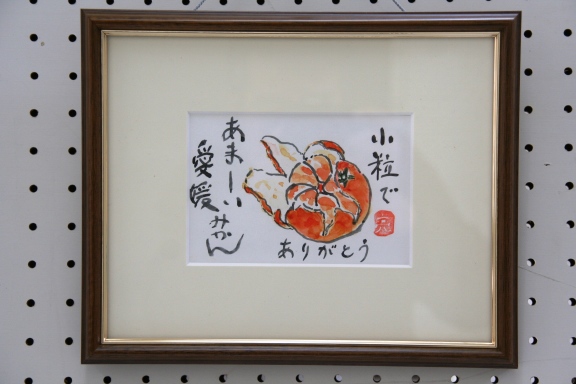 小粒で
あまーい
愛媛みかん
ありがとう